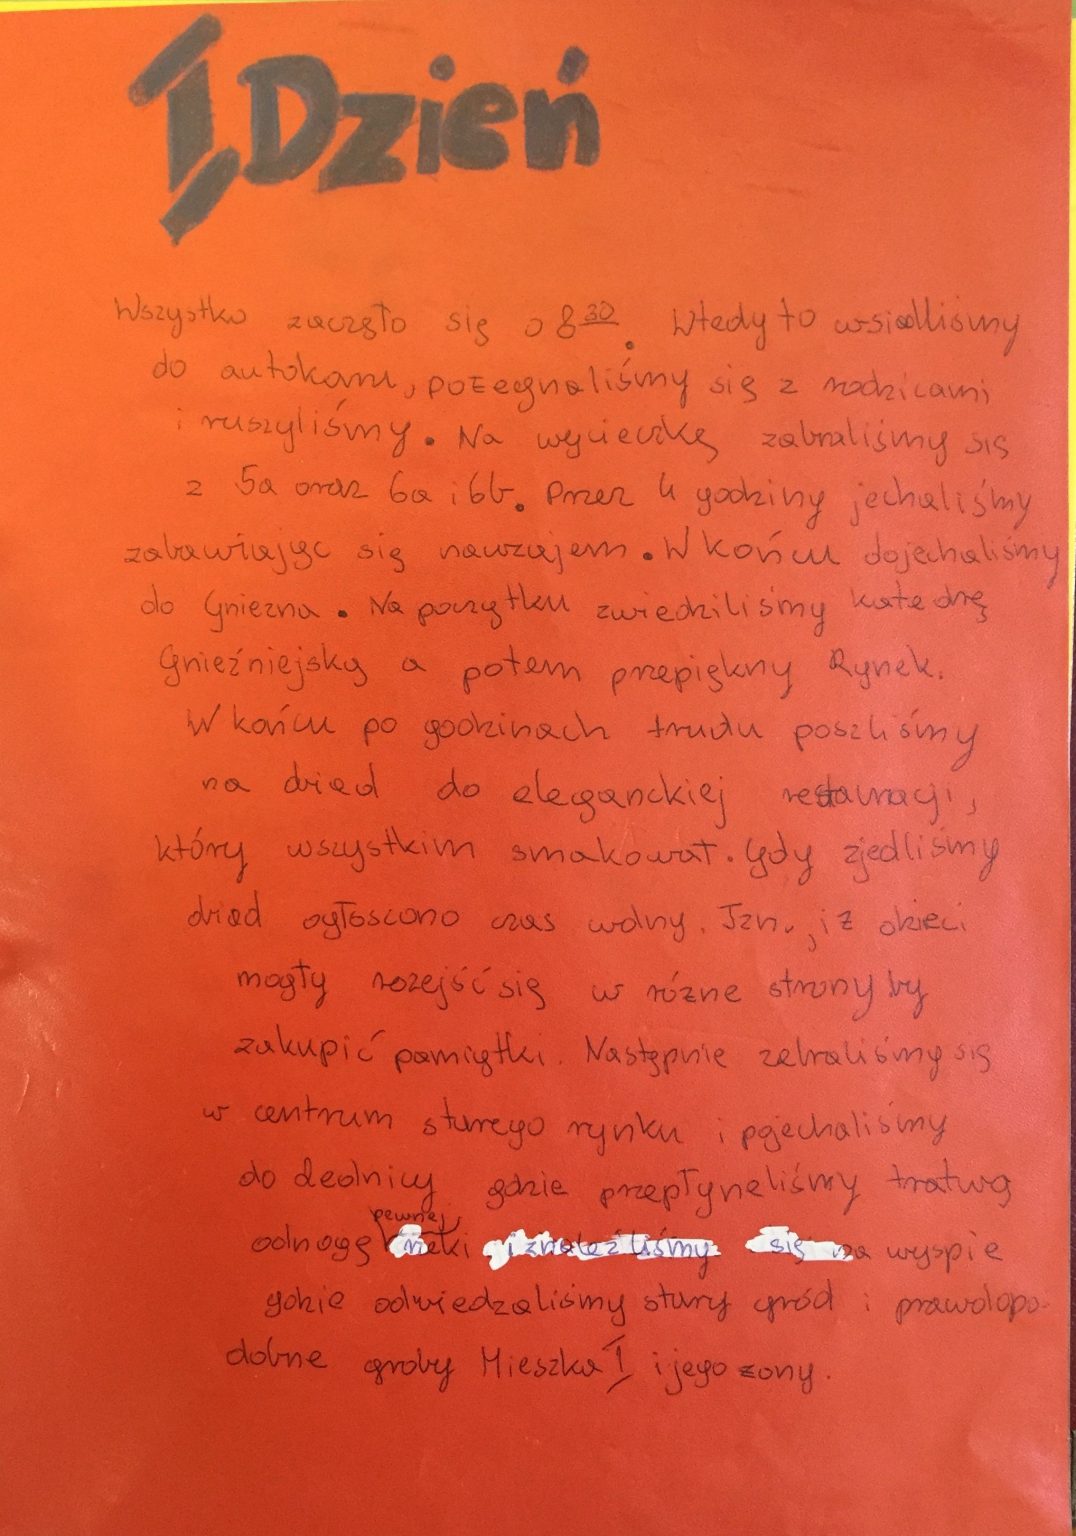 I Dzień
Wszystko zaczęło się o 8 30. Wtedy to wsiedliśmy
do autokaru, pożegnaliśmy się z rodzicami
i ruszyliśmy. Na wycieczkę zabraliśmy się
z 5a oraz 6a i 6b. Przez 4 godziny jechaliśmy
zabawiając się nawzajem. W końcu dojechaliśmy
do Gniezna. Na początku zwiedziliśmy katedrę
Gnieźniejską a potem przepiękny Rynek.
W końcu po godzinach trudu poszliśmy
na obiad do eleganckiej restauracji,
który wszystkim smakował. Gdy zjedliśmy
obiad ogłoszono czas wolny. Tzn., iż dzieci
mogły rozejść się w różne strony by
zakupić pamiątki. Następnie zebraliśmy się
w centrum starego rynku i pojechaliśmy
do Lednicy gdzie przepłyneliśmy tratwą
odnogę pewnej rzeki i znaleźliśmy się na wyspie
gdzie odwiedzaliśmy stary gród i prawdopo-
dobne groby Mieszka I i jego żony.